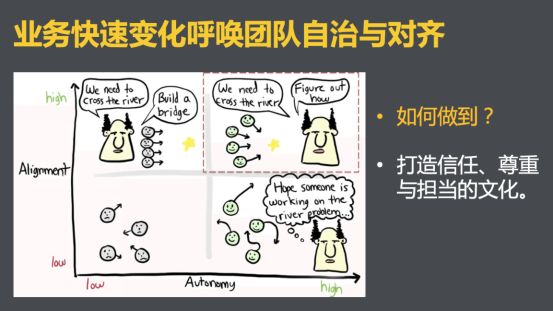 业务快速变化呼唤团队自治与对齐
high
Alignment
low
We need to
cross the river
Build a
bridge
We need to
cross the river
Figure out
how
Hope someone is
working on the
river problem...
low
Autonomy
high
• 如何做到？
• 打造信任、尊重
与担当的文化。